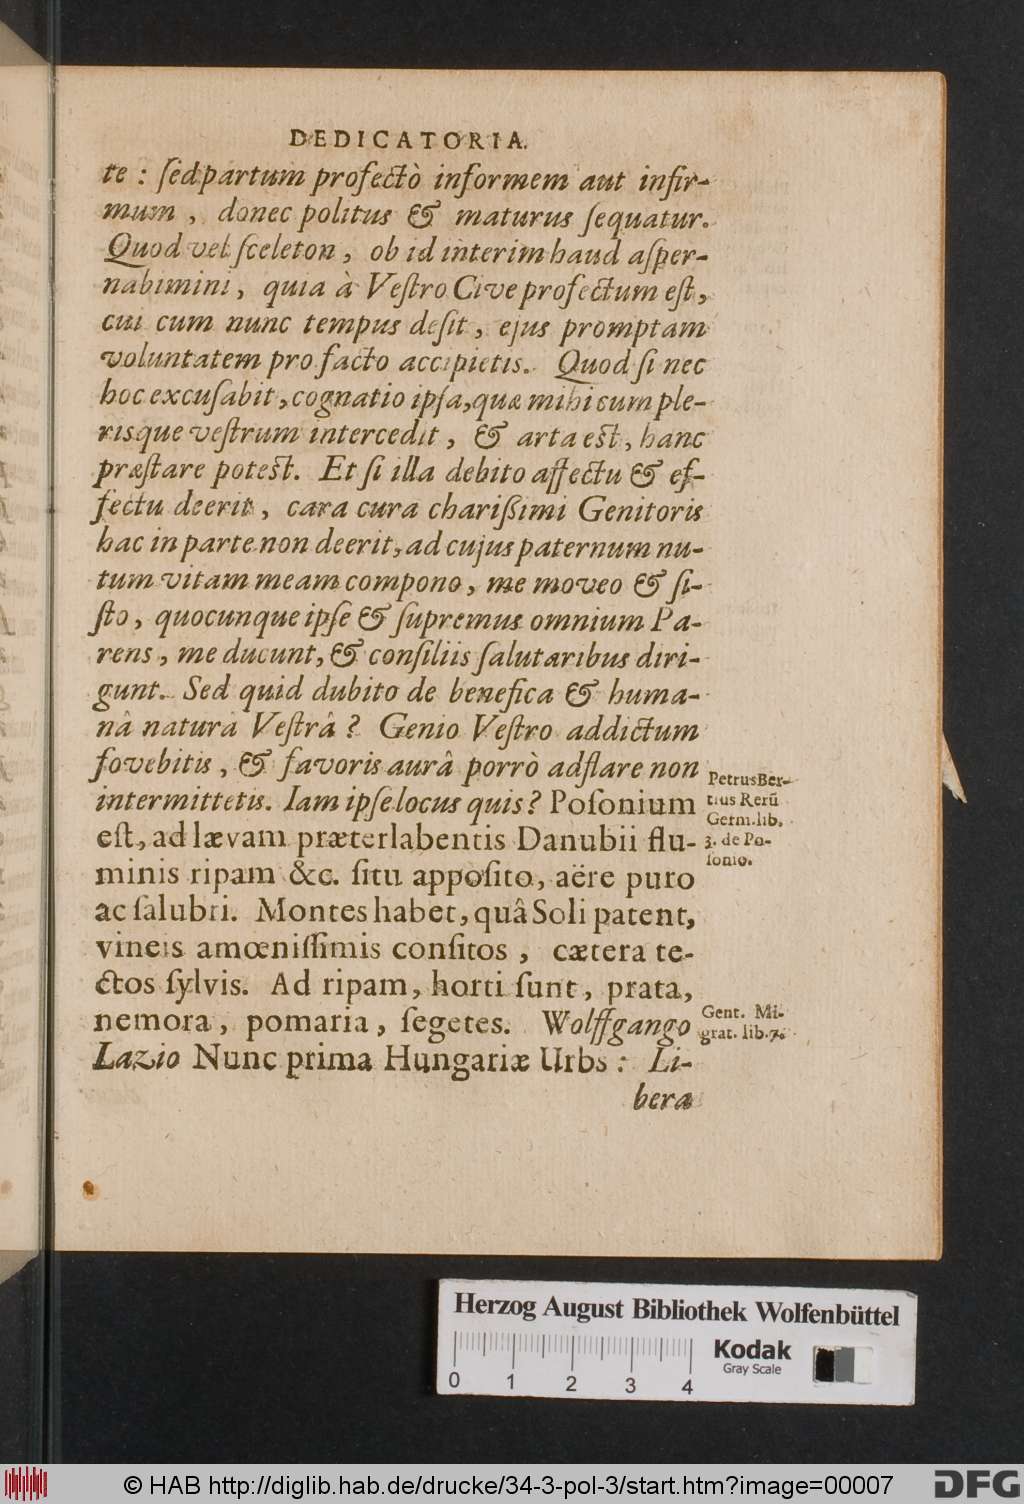 DEDICATORIA.
te : ſed partum profectò informem aut infir-
mum , donec politus & maturus ſequatur.
Quod vel ſceleton , ob id interim haud aſper-
nabimini , quia à Veſtro Cive profectum eſt,
cui cum nunc tempus deſit , ejus promptam
voluntatem pro facto accipietis. Quod ſi nec
hoc excuſabit , cognatio ipſa, quæ mihi cum ple-
risque veſtrum intercedit , & arta eſt, hanc
præſtare poteſt. Et ſi illa debito affectu & ef-
fectu deerit , cara cura chariſſimi Genitoris
hac in parte non deerit, ad cujus paternum nu-
tum vitam meam compono , me moveo & ſi-
ſto , quocunque ipſe & ſupremus omnium Pa-
rens , me ducunt, & conſiliis ſalutaribus diri-
gunt. Sed quid dubito de benefica & huma-
nâ naturâ Veſtrâ ? Genio Veſtro addictum
fovebitis , & favoris aurâ porrò adflare non
intermittetis. Iam ipſe locus quis? Poſonium
eſt, ad lævam præterlabentis Danubii flu-
minis ripam &c. ſitu appoſito, aëre puro
ac ſalubri. Montes habet, quâ Soli patent,
vineis amœniſſimis conſitos , cætera te-
ctos ſylvis. Ad ripam, horti ſunt, prata,
nemora, pomaria, ſegetes. Wolffgango
Lazio Nunc prima Hungariæ Urbs : Li-
bera
Petrus Ber-
tius Rerū
Germ. lib.
3. de Po-
ſonio.
Gent. Mi-
grat. lib. 7.
Herzog August Bibliothek Wolfenbüttel
Kodak
Gray Scale
0 1 2 3 4
© HAB http://diglib.hab.de/drucke/34-3-pol-3/start.htm?image=00007
DFG